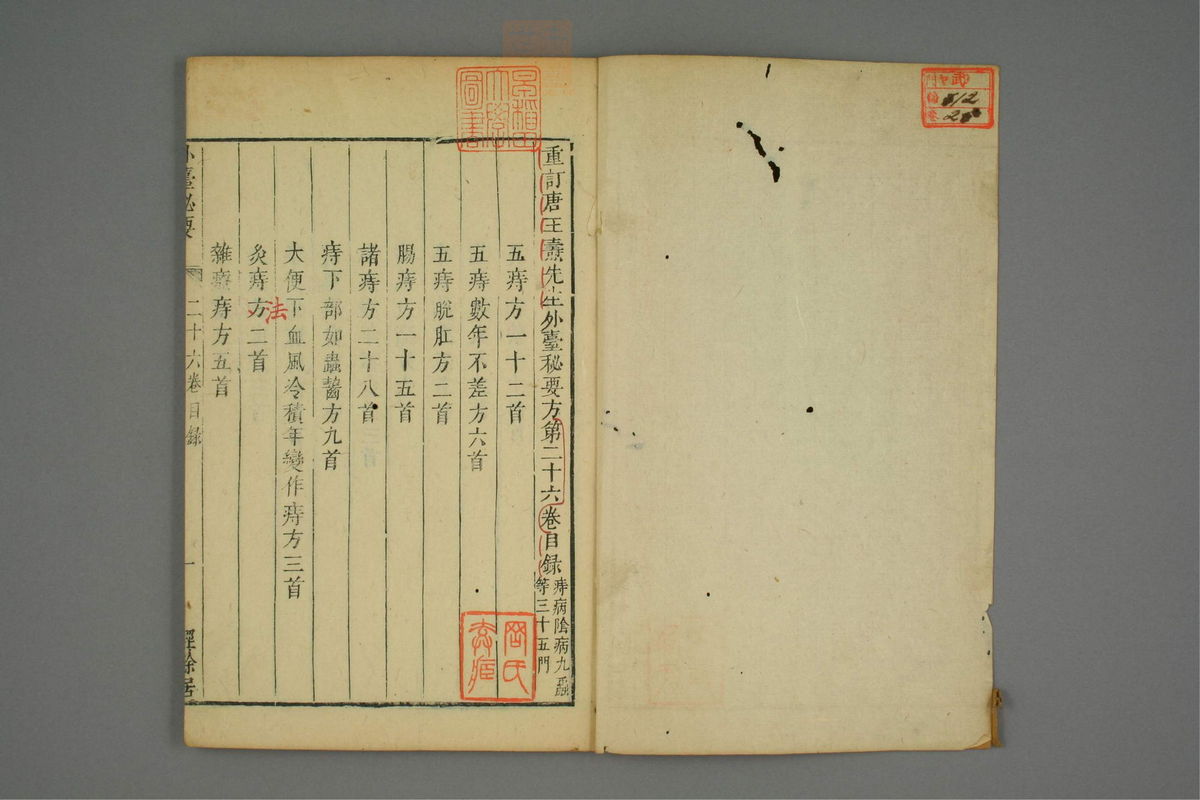 重訂唐王燾先生外臺秘要方第二十六卷目錄 痔病陰病九蟲等三十五門
五痔方一十二首
五痔數年不差方六首
五痔脫肛方二首
腸痔方一十五首
諸痔方二十八首
痔下部如蟲齧方九首
大便下血風冷積年變作痔方三首
灸痔方二首
法
雜療痔方五首
外臺秘要 二十六卷目錄 一 經餘居
512
28